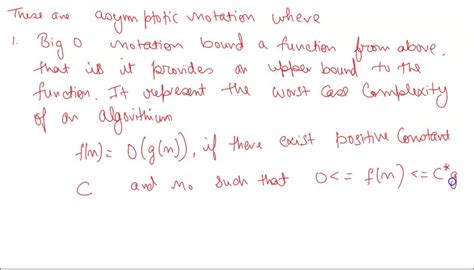 These are asymptotic notation where
1. Big O notation bound a function from above.
that is it provides an upper bound to the
function. It represent the worst case complexity
of an algorithium
f(n) = O(g(n)), if there exist positive constant
C and n₀ such that 0 <= f(n) <= C*g